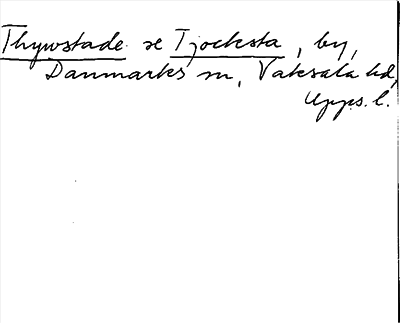 Thywstade se Tjocksta, by,
Danmarks sn, Vaksala hd,
Upps. l.